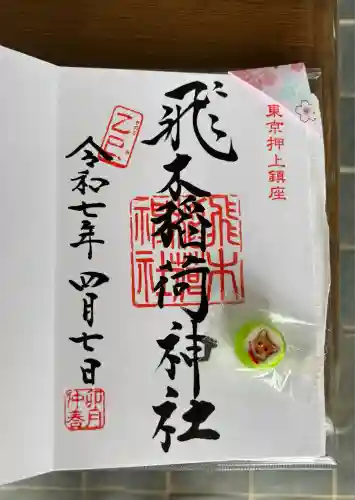 東京押上鎮座
飛木稲荷神社
飛木稲荷神社
乙巳
令和七年 四月七日
卯月
仲春